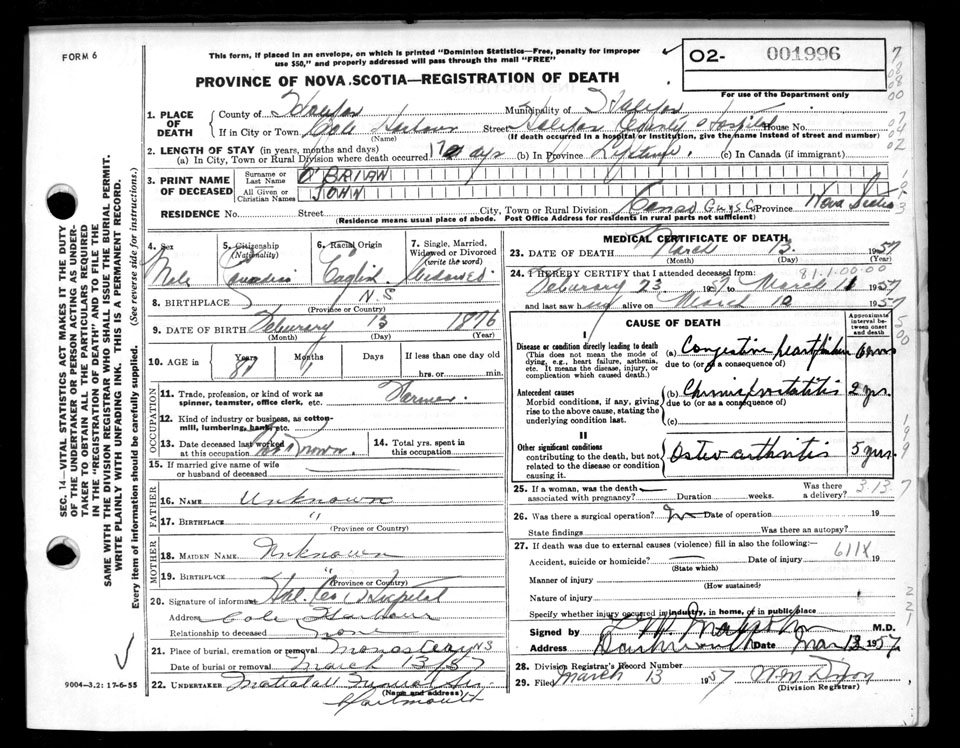 FORM 6
This form, if placed in an envelope, on which is printed "Dominion Statistics—Free, penalty for improper
use $50," and properly addressed will pass through the mail "FREE"
02- 001996
For use of the Department only
PROVINCE OF NOVA SCOTIA—REGISTRATION OF DEATH
1. PLACE OF DEATH
County of Halifax Municipality of Halifax
If in City or Town Cole Harbour Street Halifax County Hospital House No.
(Name) (If death occurred in a hospital or institution, give the name instead of street and number)
2. LENGTH OF STAY (in years, months and days)
(a) In City, Town or Rural Division where death occurred (b) In Province Lifetime. (c) In Canada (if immigrant)
3. PRINT NAME OF DECEASED
Surname or Last Name O'BRIAN
All Given or Christian Names JOHN
RESIDENCE No. Street City, Town or Rural Division Canso Guys Co Province Nova Scotia
(Residence means usual place of abode. Post Office Address for residents in rural parts not sufficient)
4. Sex Male
5. Citizenship (Nationality) Canadian
6. Racial Origin English
7. Single, Married, Widowed or Divorced (write the word) Widowed
8. BIRTHPLACE N.S
(Province or Country)
9. DATE OF BIRTH Feburary 13 1876
(Month) (Day) (Year)
10. AGE in Years 81 Months 1 Days If less than one day old
hrs. or min.
OCCUPATION
11. Trade, profession, or kind of work as spinner, teamster, office clerk, etc. Farmer.
12. Kind of industry or business, as cotton-mill, lumbering, bank, etc.
13. Date deceased last worked at this occupation Not Known.
14. Total yrs. spent in this occupation
15. If married give name of wife or husband of deceased
FATHER
16. NAME Unknown
17. BIRTHPLACE "
(Province or Country)
MOTHER
18. MAIDEN NAME Unknown
19. BIRTHPLACE "
(Province or Country)
20. Signature of informant Hal. Co. Hospital
Address Cole Harbour
Relationship to deceased none
21. Place of burial, cremation or removal Monastery NS
Date of burial or removal March 13/57
22. UNDERTAKER Funeral
(Name and address)
Dartmouth
MEDICAL CERTIFICATE OF DEATH
23. DATE OF DEATH March 1957
(Month) (Day) (Year)
24. I HEREBY CERTIFY that I attended deceased from: 81-1-00-00
Feburary 23 1957 to March 1957
and last saw him alive on March 10 1957
CAUSE OF DEATH
Approximate interval between onset and death
I
Disease or condition directly leading to death (a) Congestive heart failure
(This does not mean the mode of dying, e.g., heart failure, asthenia, etc. It means the disease, injury, or complication which caused death.)
due to (or as a consequence of)
Antecedent causes (b) Chronic prostatitis 2 yrs.
Morbid conditions, if any, giving rise to the above cause, stating the underlying condition last.
due to (or as a consequence of)
(c)
II
Other significant conditions Osteo arthritis 5 yrs.
contributing to the death, but not related to the disease or condition causing it.
25. If a woman, was the death associated with pregnancy? Duration weeks. Was there a delivery? 3-13-7
26. Was there a surgical operation? Date of operation 19
State findings Was there an autopsy?
27. If death was due to external causes (violence) fill in also the following:—
Accident, suicide or homicide? Date of injury 611X 19
(State which)
Manner of injury
(How sustained)
Nature of injury
Specify whether injury occurred in industry, in home, or in public place
Signed by M.D.
Address Dartmouth Date Mar 13 1957
28. Division Registrar's Record Number
29. Filed March 13 1957
(Division Registrar)
9004—3,2: 17-6-55
SEC. 14—VITAL STATISTICS ACT MAKES IT THE DUTY
OF THE UNDERTAKER OR PERSON ACTING AS UNDERTAKER TO OBTAIN ALL THE PARTICULARS REQUIRED
IN THE "REGISTRATION OF DEATH" AND TO FILE THE
SAME WITH THE DIVISION REGISTRAR WHO SHALL ISSUE THE BURIAL PERMIT.
WRITE PLAINLY WITH UNFADING INK. THIS IS A PERMANENT RECORD.
Every item of information should be carefully supplied. (See reverse side for instructions.)